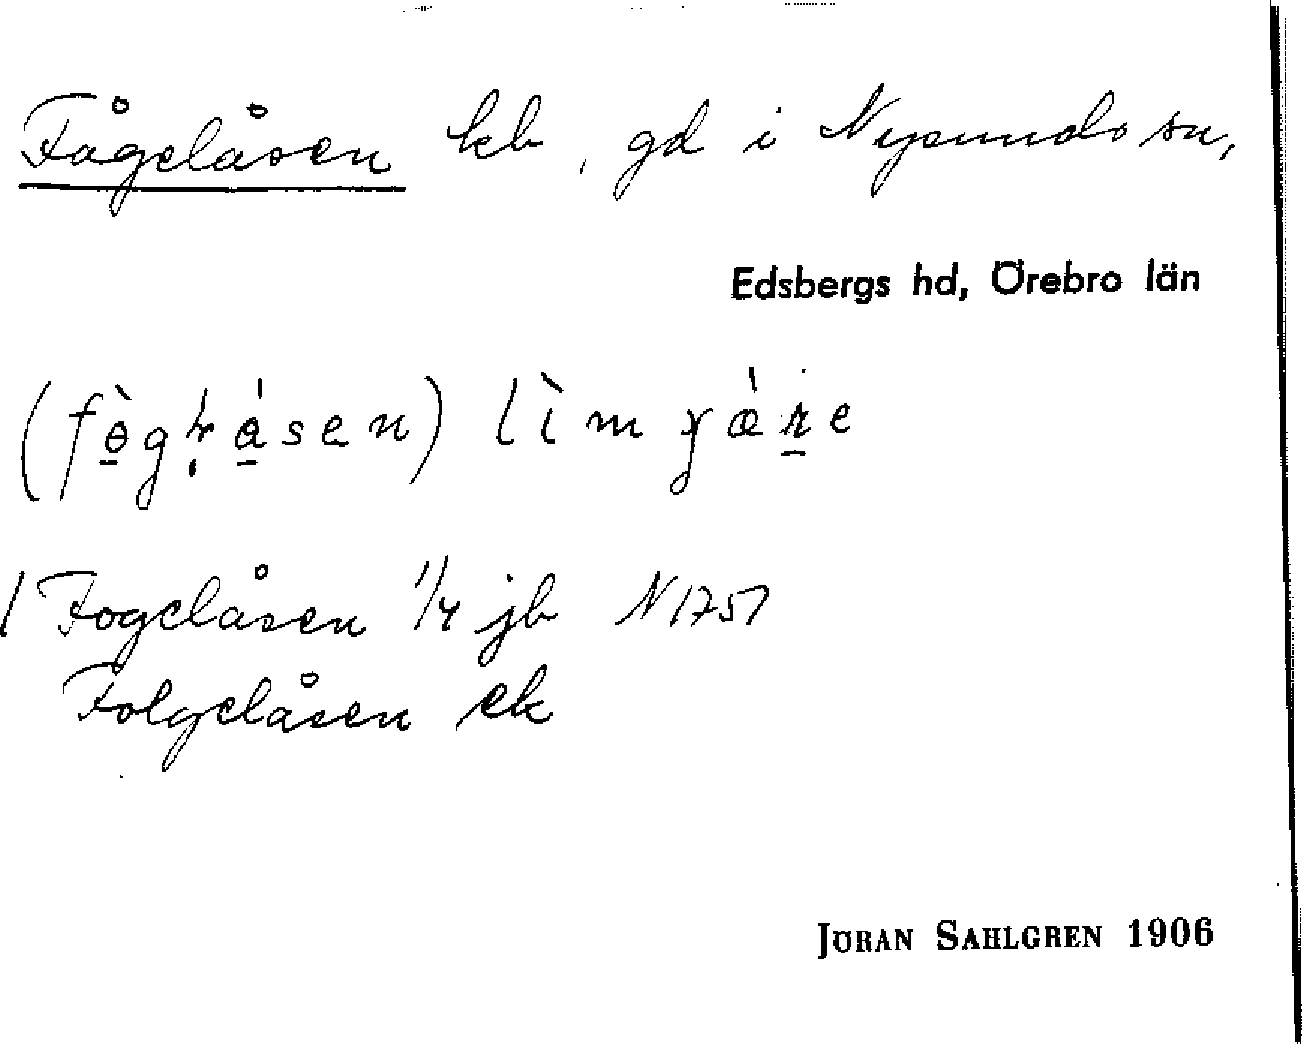 Fågelåsen kb, gd i Nysunds sn,
Edsbergs hd, Örebro län
Fogelåsen 1/4 jb N 1751
Folgelåsen ek
JÖRAN SAHLGREN 1906